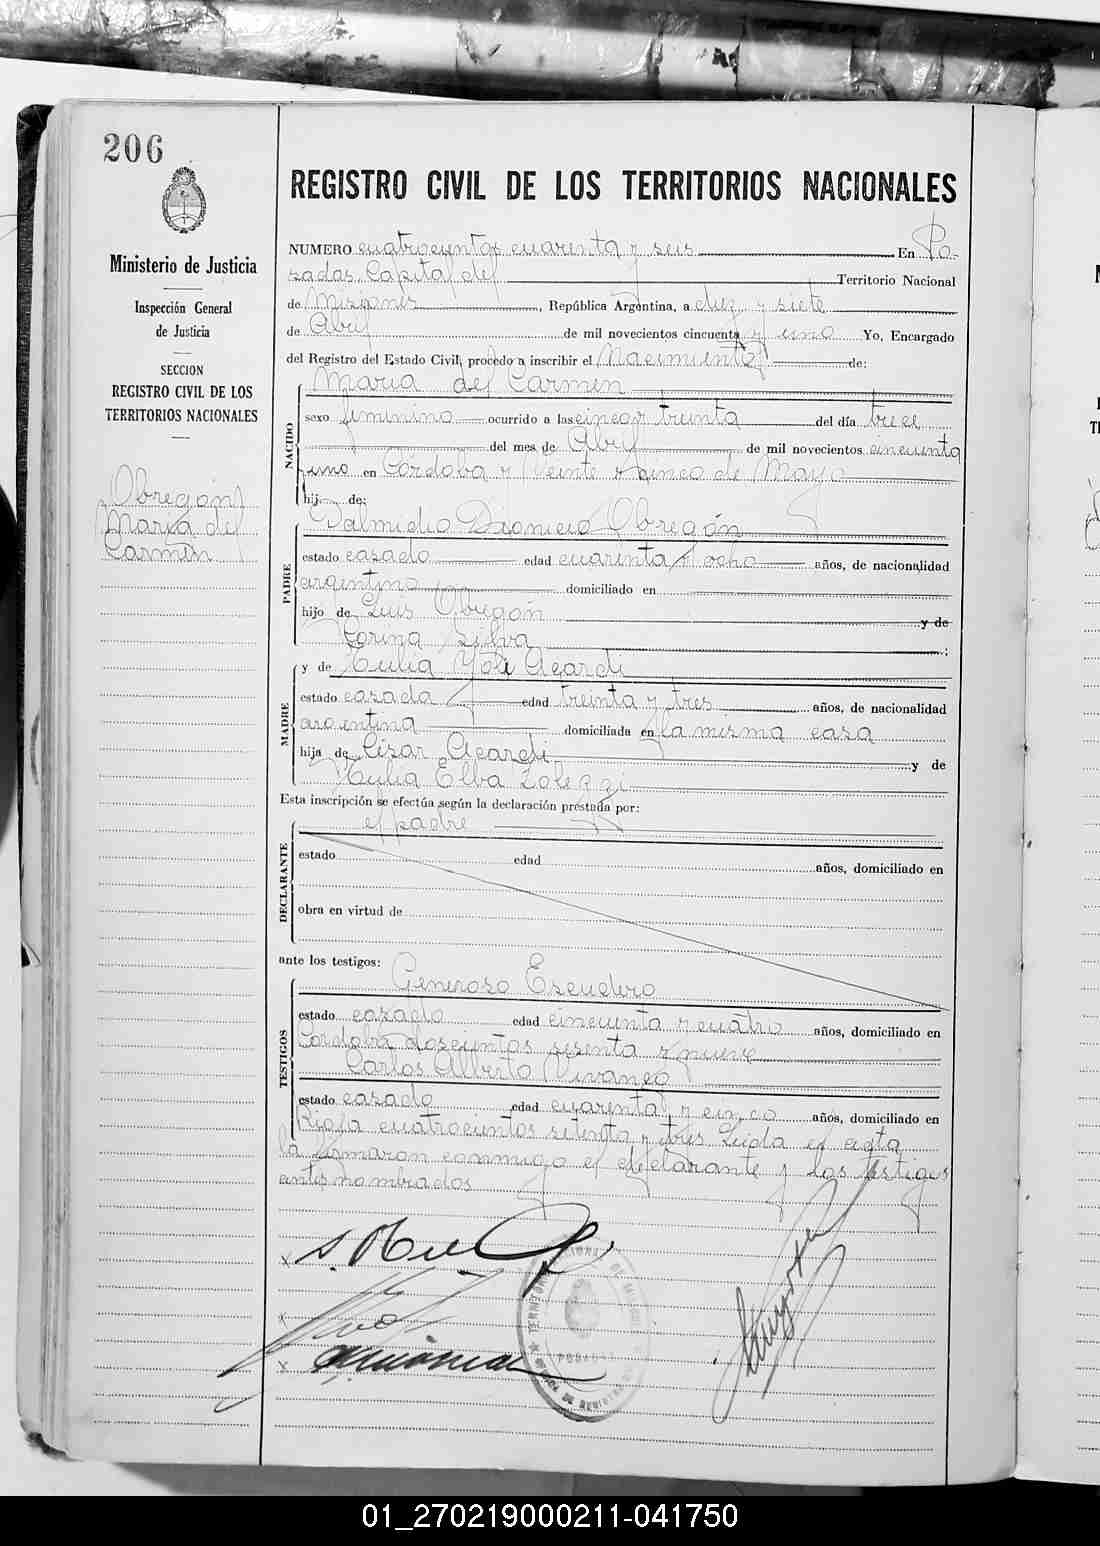 206
Ministerio de Justicia
Inspección General
de Justicia
SECCION
REGISTRO CIVIL DE LOS
TERRITORIOS NACIONALES
Obregón
María del
Carmen
REGISTRO CIVIL DE LOS TERRITORIOS NACIONALES
NUMERO cuatrocientos cuarenta y seis En Po-
sadas Capital del Territorio Nacional
de Misiones, República Argentina, a diez y siete
de Abril de mil novecientos cincuenta y uno Yo, Encargado
del Registro del Estado Civil, procedo a inscribir el Nacimiento de:
NACIDO
María del Carmen
sexo femenino ocurrido a las cinco y treinta del día trece
del mes de Abril de mil novecientos cincuenta
y uno en Córdoba y Veinte y cinco de Mayo
hij de:
PADRE
Dalmicio Dionicio Obregón
estado casado edad cuarenta y ocho años, de nacionalidad
argentino domiciliado en
hijo de Luis Obregón y de
Corina Silva
MADRE
y de Julia Yole Acardi
estado casada edad treinta y tres años, de nacionalidad
argentina domiciliada en la misma casa
hija de César Acardi y de
Julia Elba Zolezzi
Esta inscripción se efectúa según la declaración prestada por:
el padre
DECLARANTE
estado edad años, domiciliado en
obra en virtud de
ante los testigos:
TESTIGOS
Generoso Escudero
estado casado edad cincuenta y cuatro años, domiciliado en
Córdoba doscientos sesenta y nueve
Carlos Alberto Vivanco
estado casado edad cuarenta y cinco años, domiciliado en
Rioja cuatrocientos setenta y tres Leida el acta
la firmaron conmigo el declarante y los testigos
antes nombrados
01_270219000211-041750